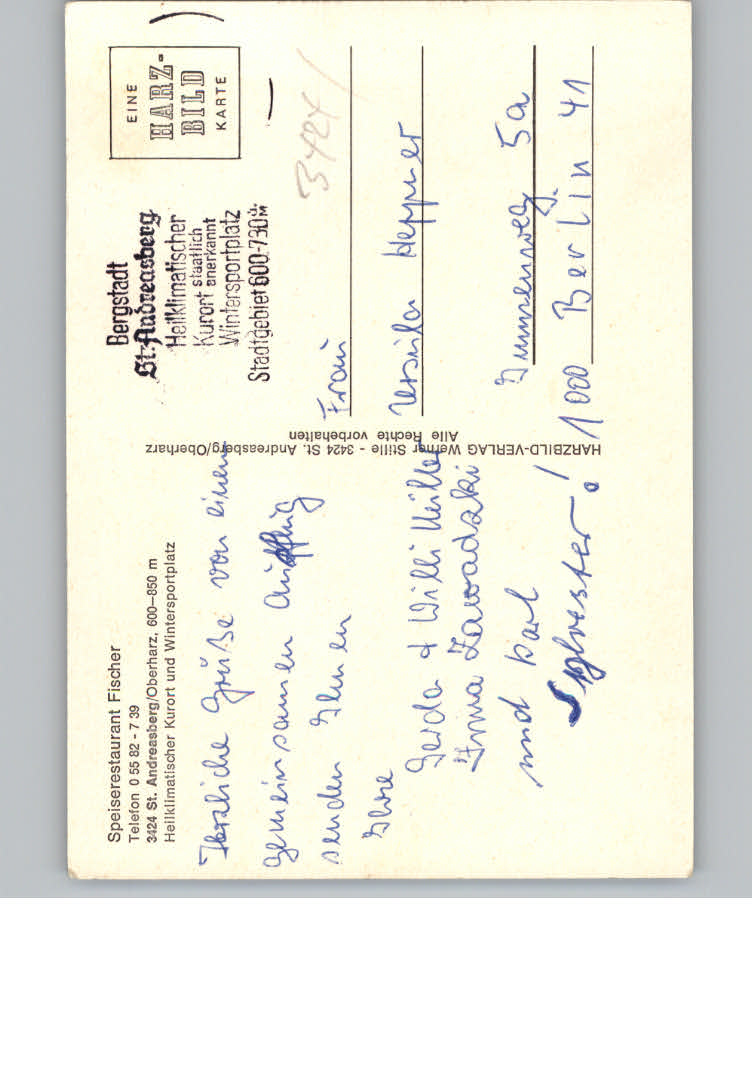 Speiserestaurant Fischer
Telefon 0 55 82 - 7 39
3424 St. Andreasberg/Oberharz, 600–850 m
Heilklimatischer Kurort und Wintersportplatz
Herzliche Grüße von einem
gemeinsamen Ausflug
senden Ihnen
Ihre
Gerda + Willi Müller
Irma Zawadzki
und Karl
Sylvester!
HARZBILD-VERLAG Werner Stille - 3424 St. Andreasberg/Oberharz
Alle Rechte vorbehalten
Bergstadt
St. Andreasberg
Heilklimatischer
Kurort staatlich
Kurort anerkannt
Wintersportplatz
Stadtgebiet 600-730 ü. M
EINE
HARZ-
BILD
KARTE
3424 /
Frau
Ursula Heppner
Immenweg 5a
1000 Berlin 41